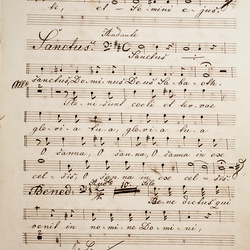 ti, et Semini ejus.
Andante
Sanctus. Sanctus
sanctus, Dominus Deus Sabaoth.
Pleni sunt coeli et terrae
gloria tua, gloria tua
Osanna, Osanna, Osanna in ex
celsis, Osanna in excelsis.
Bened: 10 Solo
Benedictus qui
venit in nomine Domini,